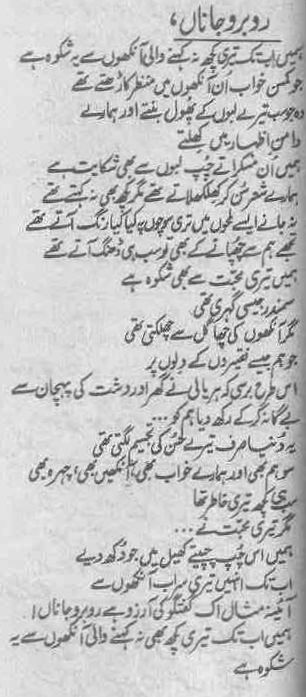 روبرو جاناں،
ہمیں اب تک تیری کچھ نہ کہنے والی آنکھوں سے یہ شکوہ ہے
جو کمسن خواب اُن آنکھوں میں منظر کاڑھتے تھے
وہ جو سب تیرے لبوں کے پھول بنتے اور ہمارے
دامنِ اظہار میں کھلتے
ہمیں اُن مسکراتے چُپ لبوں سے بھی شکایت ہے
ہمارے شعر سُن کر کھلکھلاتے تھے مگر کچھ بھی نہ کہتے تھے
نہ جانے ایسے لمحوں میں تری سوچوں پر کیا کیا رنگ آتے تھے
تجھے ہم سے چھپانے کے بھی تو سب ہی ڈھنگ آتے تھے
ہمیں تیری محبت سے بھی شکوہ ہے
سمندر جیسی گہری تھی
مگر آنکھوں کی چھاگل سے چھلکتی تھی
جو ہم جیسے فقیروں کے دلوں پر
اس طرح برسی کہ ہریالی نے گھر اور دشت کی پہچان سے
بے گانہ کر کے رکھ دیا ہم کو...
یہ دُنیا صرف تیرے حُسن کی تجسیم لگتی تھی
سو ہم بھی اور ہمارے خواب بھی، آنکھیں بھی، چہرہ بھی
سبھی کچھ تیری خاطر تھا
مگر تیری محبت نے...
ہمیں اس چُپ چپیتے کھیل میں جو دُکھ دیے
اب تک انہیں تیری سراب آنکھوں سے
آئینہ مثال اک گفتگو کی آرزو ہے روبرو جاناں!
ہمیں اب تک تیری کچھ بھی نہ کہنے والی آنکھوں سے یہ
شکوہ ہے